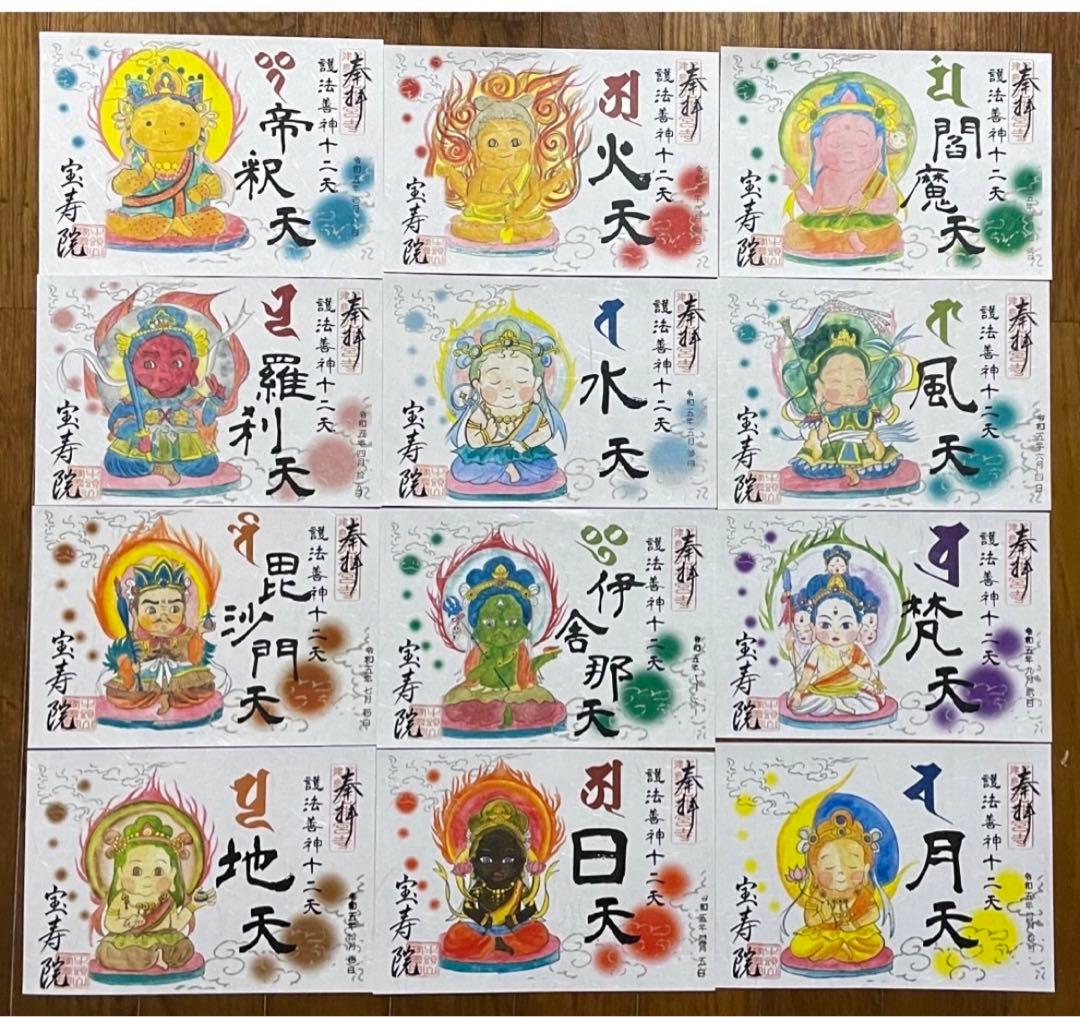 奉拝
護法善神十二天
帝釈天
宝寿院
奉拝
護法善神十二天
火天
宝寿院
奉拝
護法善神十二天
閻魔天
宝寿院
奉拝
護法善神十二天
羅刹天
令和五年四月
宝寿院
奉拝
護法善神十二天
水天
令和五年五月
宝寿院
奉拝
護法善神十二天
風天
令和五年六月四日
宝寿院
奉拝
護法善神十二天
毘沙門天
令和五年七月
宝寿院
奉拝
護法善神十二天
伊舎那天
宝寿院
奉拝
護法善神十二天
梵天
宝寿院
奉拝
護法善神十二天
地天
宝寿院
奉拝
護法善神十二天
日天
宝寿院
奉拝
護法善神十二天
月天
宝寿院